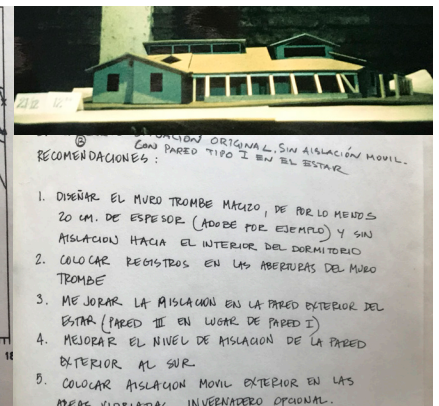 SITUACIÓN ORIGINAL, SIN AISLACIÓN MOVIL.
CON PARED TIPO I EN EL ESTAR
RECOMENDACIONES :
1. DISEÑAR EL MURO TROMBE MACIZO, DE POR LO MENOS
20 CM. DE ESPESOR (ADOBE POR EJEMPLO) Y SIN
AISLACION HACIA EL INTERIOR DEL DORMITORIO
2. COLOCAR REGISTROS EN LAS ABERTURAS DEL MURO
TROMBE
3. MEJORAR LA AISLACION EN LA PARED EXTERIOR DEL
ESTAR (PARED III EN LUGAR DE PARED I)
4. MEJORAR EL NIVEL DE AISLACION DE LA PARED
EXTERIOR AL SUR
5. COLOCAR AISLACION MOVIL EXTERIOR EN LAS
AREAS VIDRIADAS INVERNADERO OPCIONAL.
18